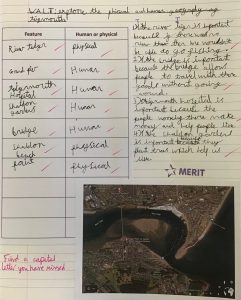 W.A.L.T: explore the phisical and human geography of
Teignmouth
Feature
Human or physical
River Teign
physical
Human
Teignmouth
Hospital
Human
Shaldon
Human
Bridge
Human
Shaldon
beach
physical
physical
1) The river Teign is important
because if there was no
river then we wouldn't
be able to go fishing.
2) The bridge is important
because the bridge allows
people to travel with their
goods without going
around.
3) Teignmouth hospital is
important because the
people working there make
money and help people live.
4) The shaldon gardens
is important because they
plant trees which help us
live.
MERIT
Find a capital
letter you have missed